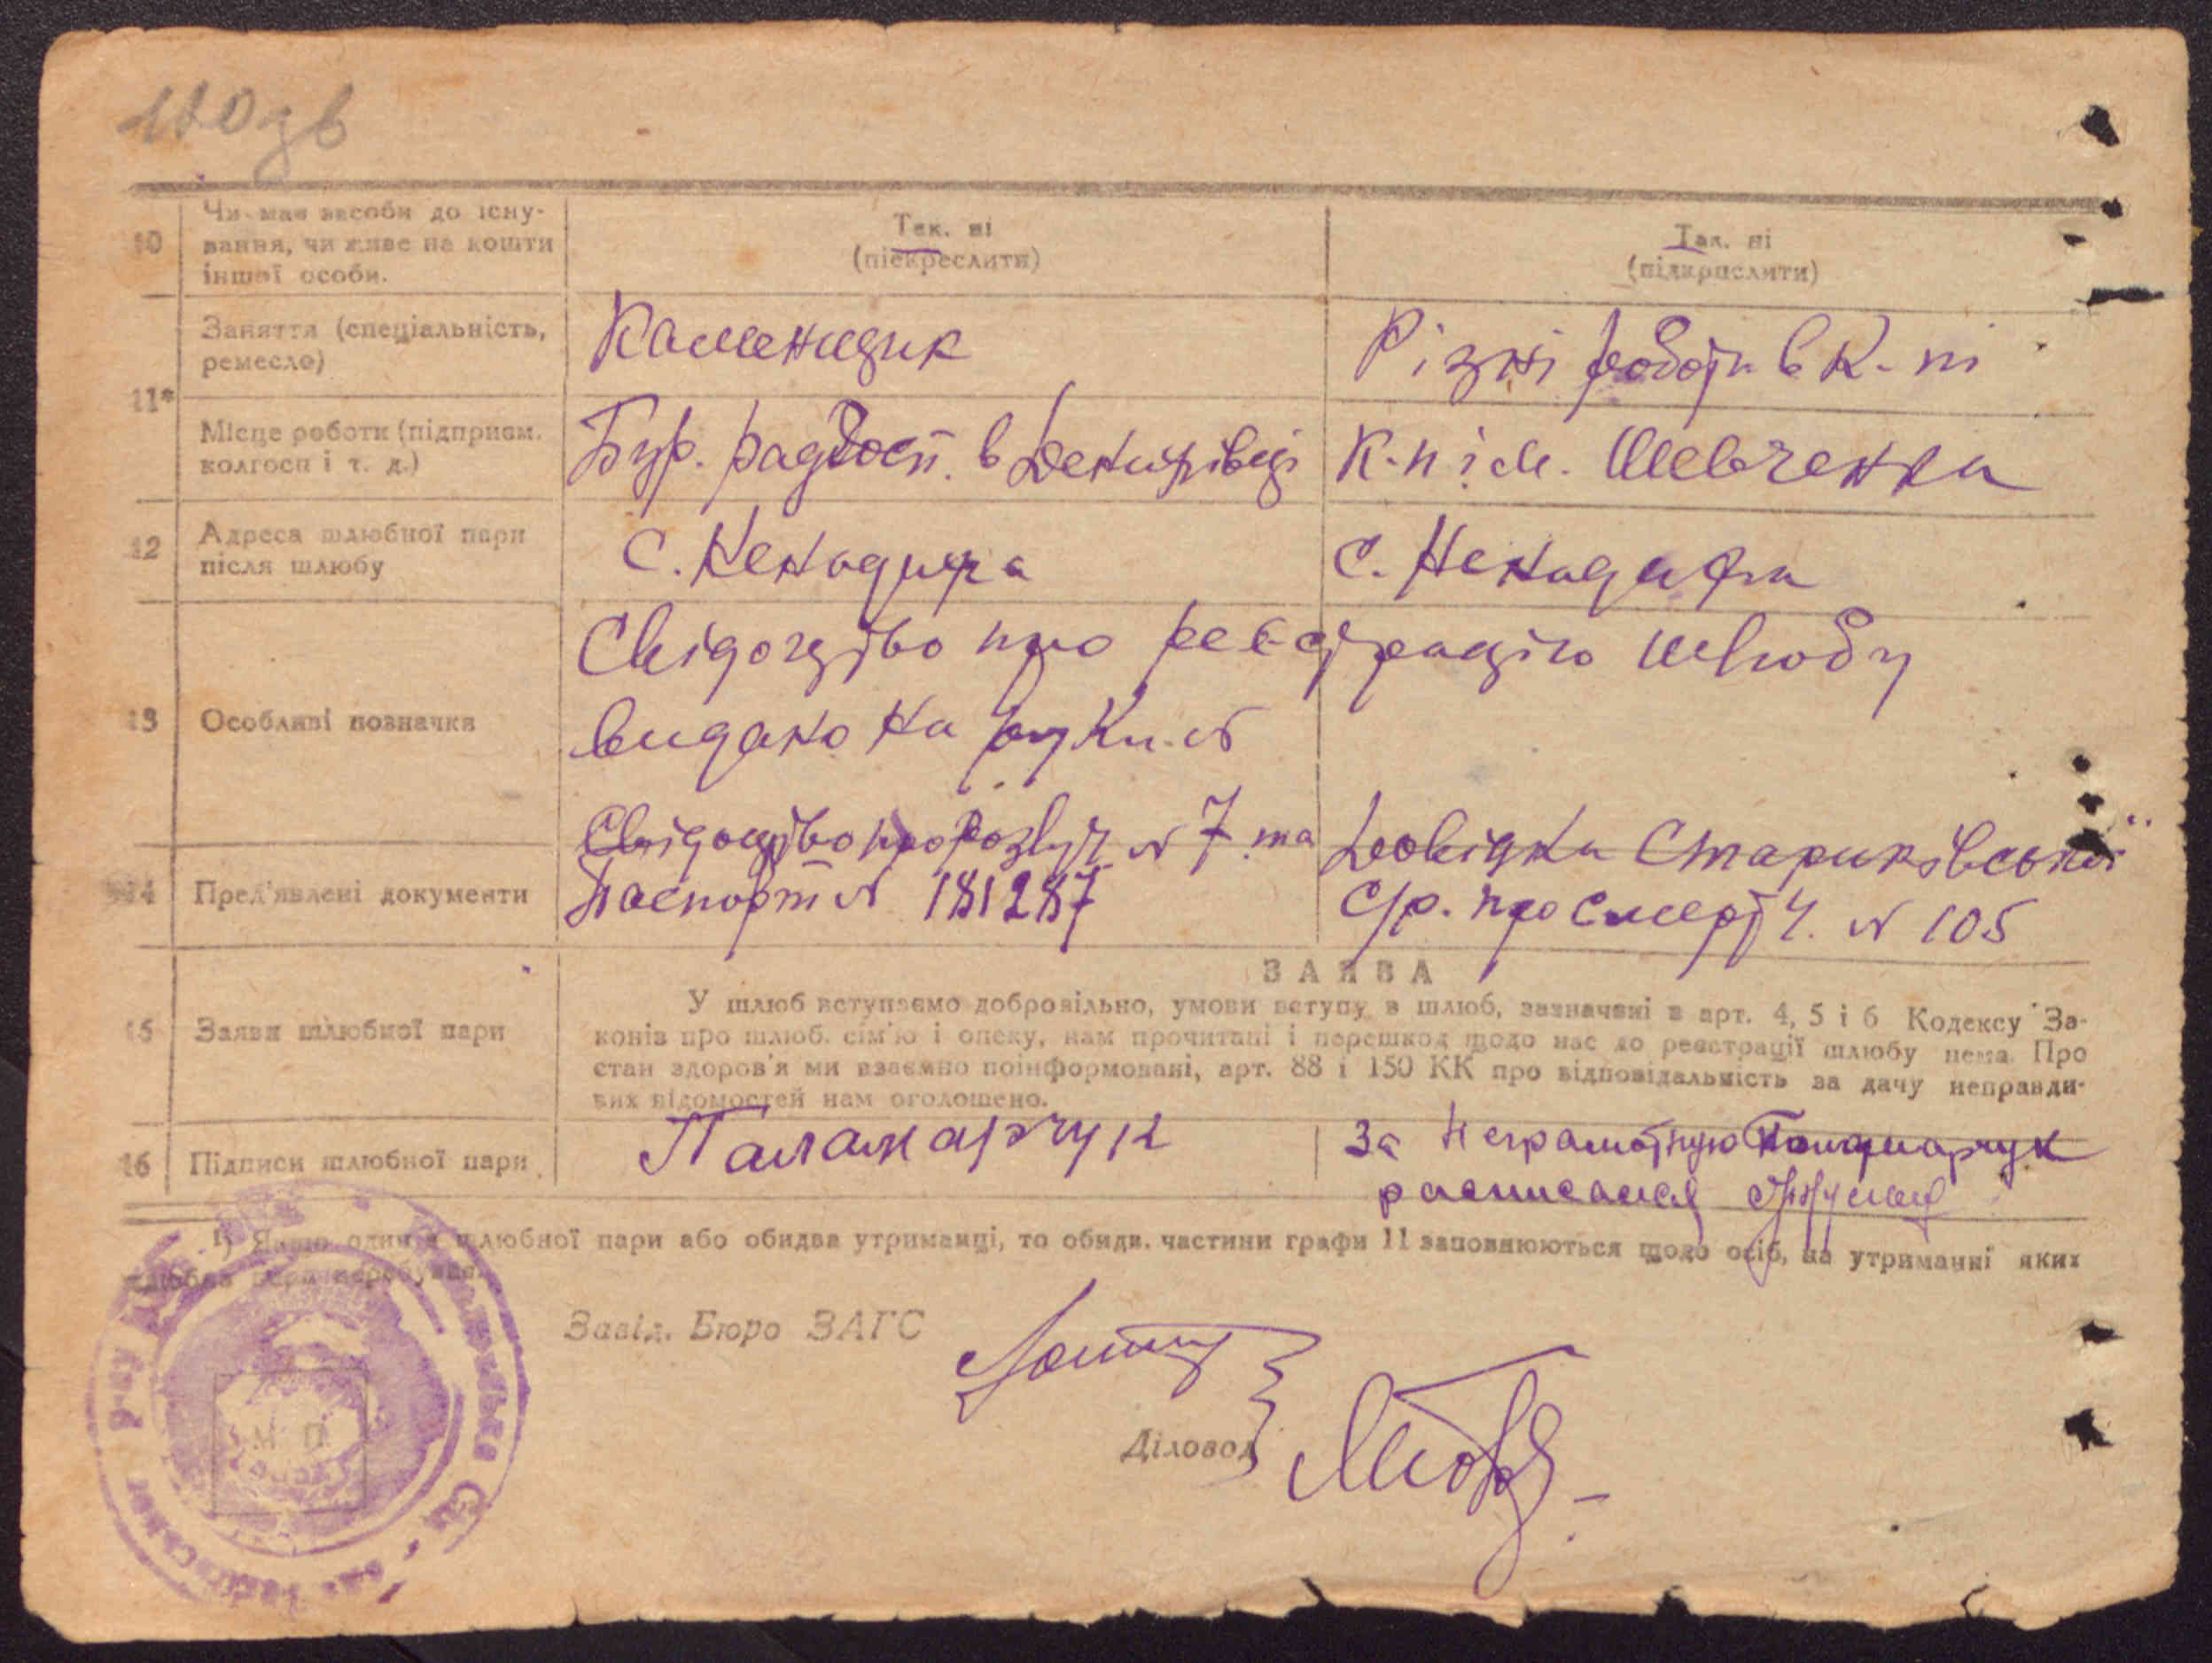 10 Чи має засоби до існу-
вання, чи живе на кошти
іншої особи.
Так. ні
(підкреслити)
Так. ні
(підкреслити)
11*
Заняття (спеціальність,
ремесло)
Каменщик
Різні роботи в К-пі
Місце роботи (підприєм.
колгосп і т. д.)
Бур. радгосп. в
К-п ім. Шевченка
12 Адреса шлюбної пари
після шлюбу
С. Ненадиха
С. Ненадиха
13 Особливі позначки
Свідоцтво про реєстрацію шлюбу
видано на руки. №
14 Пред'явлені документи
Свідоцтво про розлуч № 7 та
Паспорт № 181287
Довідка Стариківської
С/р. про смерть Ч. № 105
ЗАЯВА
15 Заяви шлюбної пари
У шлюб вступаємо добровільно, умови вступу в шлюб, зазначені в арт. 4, 5 і 6 Кодексу За-
конів про шлюб. сім'ю і опеку, нам прочитані і перешкод щодо нас до реєстрації шлюбу нема. Про
стан здоров'я ми взаємно поінформовані, арт. 88 і 150 КК про відповідальність за дачу неправди-
вих відомостей нам оголошено.
16 Підписи шлюбної пари
Паламарчук
За неграмотную
расписался
1) Якщо один з шлюбної пари або обидва утриманці, то обидв. частини графи 11 заповнюються щодо осіб, на утриманні яких
шлюбна пари перебуває.
Завід. Бюро ЗАГС
Діловод
М П